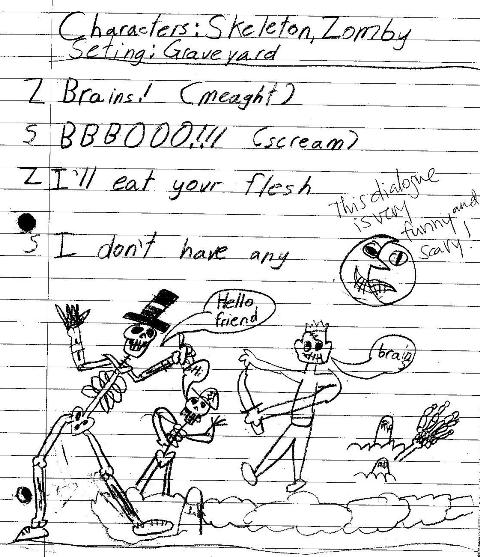 Characters: Skeleton, Zomby
Seting: Graveyard
Z Brains! (meaght)
S BBBOOO!!! (scream)
Z I'll eat your flesh
S I don't have any
This dialogue
is very
funny and
scary!
Hello
friend
Hi
brain